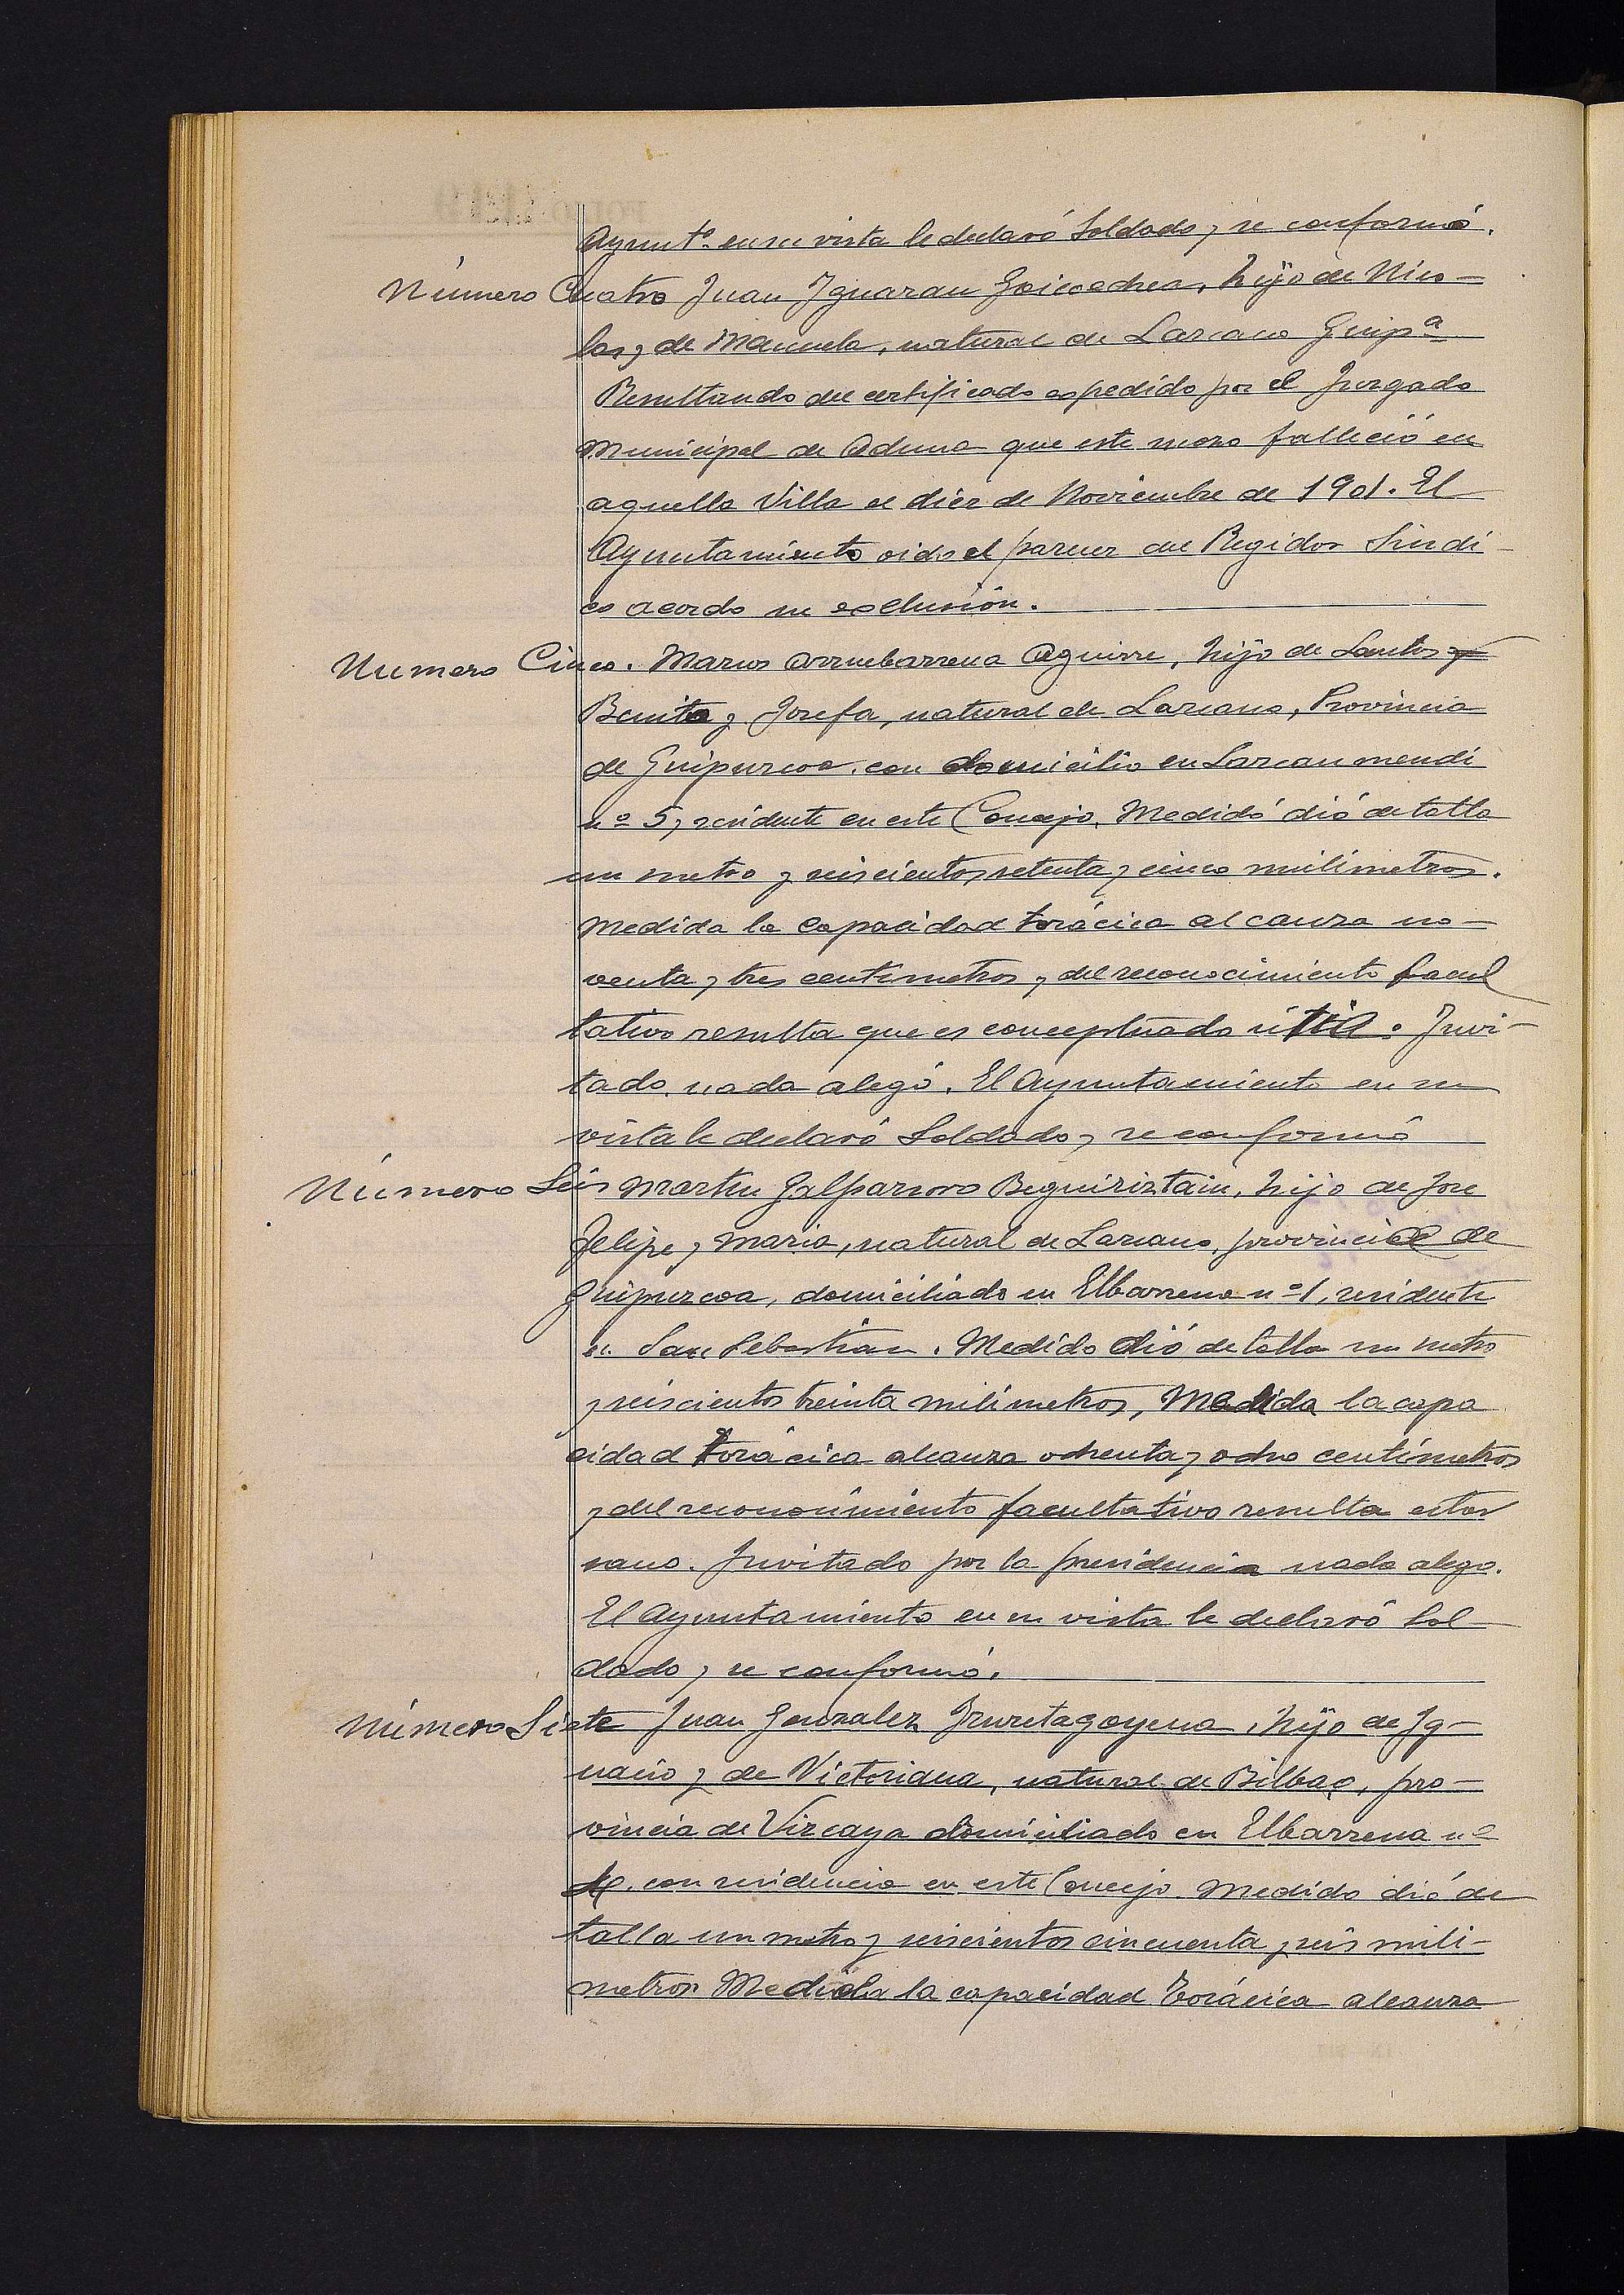 Ayunt.º en su vista le declaró Soldado y se conformó.
Número Cuatro Juan Iguaran Goicoechea, hijo de Nico-
las y de Manuela, natural de Lazcano Guipª
Resultando del certificado espedido por el Juzgado
Municipal de Aduna que este mozo falleció en
aquella Villa el diez de Noviembre de 1901. El
Ayuntamiento oido el parecer del Regidor Sindi-
co acordo su esclusión.
Numero Cinco. Marcos Arruebarrena Aguirre, hijo de Santos y
Benita y Josefa, natural de Lazcano, Provincia
de Guipuzcoa, con domicilio en Lazcaumendi
nº 5, residente en este Concejo. Medidó dió de talla
un metro y seiscientos setenta y cinco milimetros.
Medida la capacidad torácica alcanza no-
venta y tres centimetros y del reconocimiento facul
tativo resulta que es conceptuado útil. Invi-
tado nada alegó. El Ayuntamiento en su
vista le declaró Soldado y se conformó
Número Seis Martin Galparsoro Beguiriztain, hijo de Jose
Felipe y Maria, natural de Lazcano, provincia de
Guipuzcoa, domiciliado en Elbarrena nº 1, residente
en San Sebastian. Medido dió de talla un metro
y seiscientos treinta milimetros, Medida la capa
cidad torácica alcanza ochenta y ocho centímetros
y del reconocimiento facultativo resulta estar
sano. Invitado por la presidencia nada alego.
El Ayuntamiento en su vista le declaró Sol
dado y se conformó.
Número Siete Juan Gonzalez Iruretagoyena, hijo de Ig-
nacio y de Victoriana, natural de Bilbao, pro-
vincia de Vizcaya domiciliado en Elbarrena nº
con residencia en este Concejo. Medido dió de
talla un metro y seiscientos cincuenta y seis mili-
metros Medida la capacidad torácica alcanza